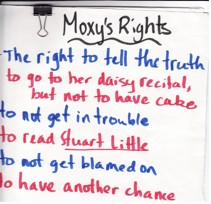 Moxy's Rights
-The right to tell the truth
to go to her daisy recital,
but not to have cake
to not get in trouble
to read Stuart Little
to not get blamed on
to have another chance